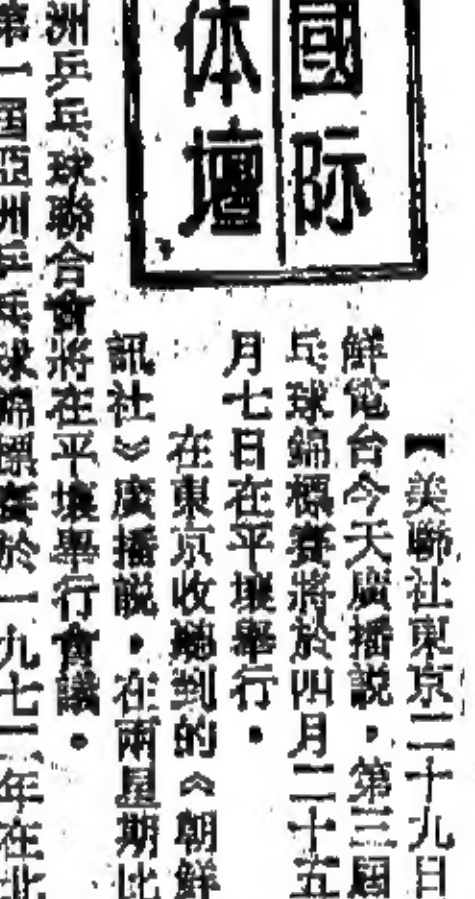 國际
体壇
【美聯社東京二十九日
鮮電台今天廣播説，第三屆
乓球錦標賽將於四月二十五
月七日在平壤舉行。
在東京收聽到的《朝鮮
訊社》廣播説，在兩星期比
洲乒乓球聯合會將在平壤舉行會議。
第一屆亞洲乒乓球錦標賽於一九七二年在北